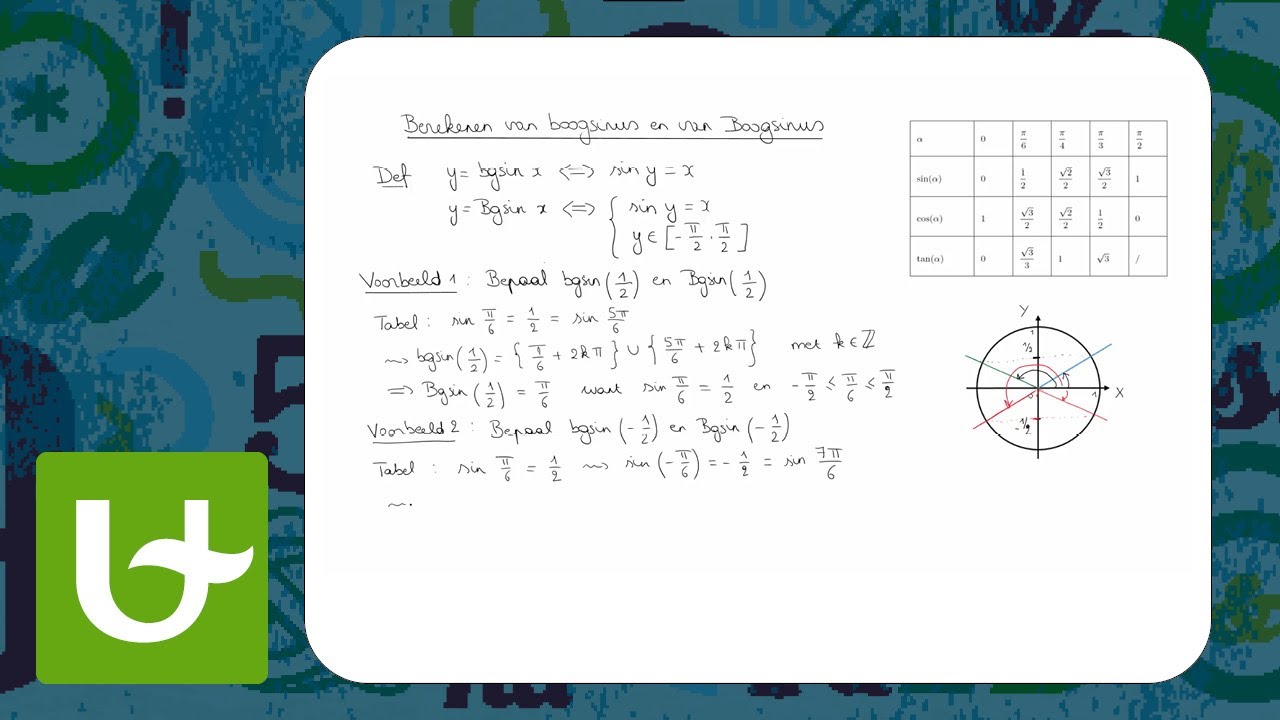 Berekenen van boogsinus en van Boogsinus
Def y = bgsin x ⟺ sin y = x
y = Bgsin x ⟺ { sin y = x
y ∈ [-π/2, π/2]
Voorbeeld 1 : Bepaal bgsin(1/2) en Bgsin(1/2)
Tabel : sin π/6 = 1/2 = sin 5π/6
⤳ bgsin(1/2) = {π/6 + 2kπ} ∪ {5π/6 + 2kπ} met k ∈ ℤ
⟹ Bgsin(1/2) = π/6 want sin π/6 = 1/2 en -π/2 ≤ π/6 ≤ π/2
Voorbeeld 2 : Bepaal bgsin(-1/2) en Bgsin(-1/2)
Tabel : sin π/6 = 1/2 ⤳ sin(-π/6) = -1/2 = sin 7π/6
α 0 π/6 π/4 π/3 π/2
sin(α) 0 1/2 √2/2 √3/2 1
cos(α) 1 √3/2 √2/2 1/2 0
tan(α) 0 √3/3 1 √3 /
Y
1
1/2
0 1 X
-1/2